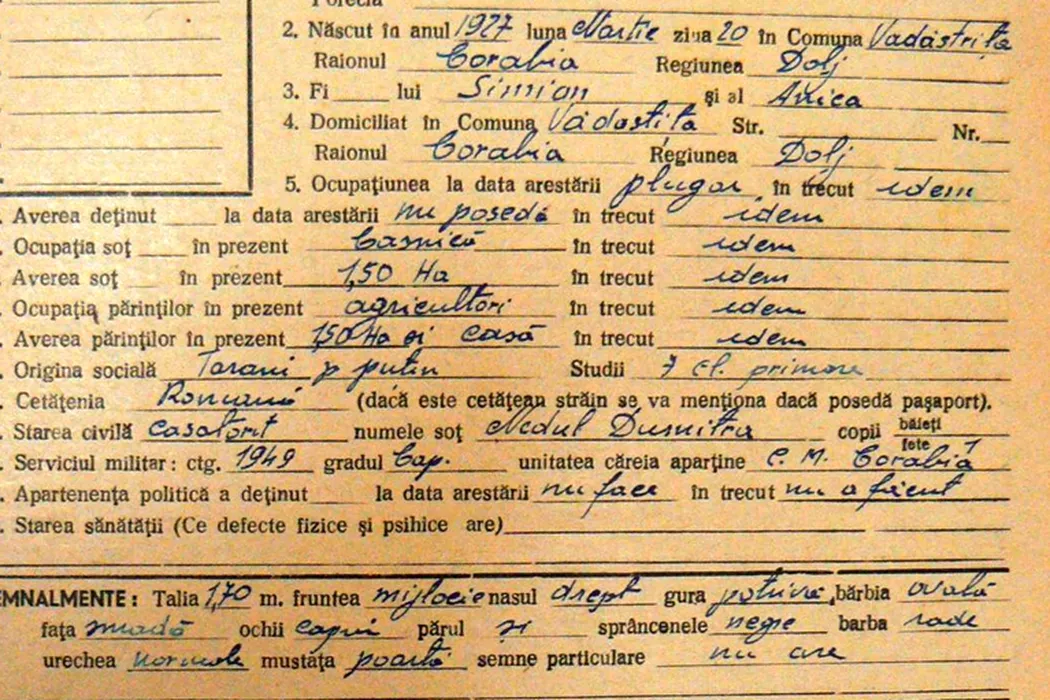 Porecla
2. Născut în anul 1927 luna Martie ziua 20 în Comuna Vadastrița
Raionul Corabia Regiunea Dolj
3. Fi____ lui Simion și al Anica
4. Domiciliat în Comuna Vadastița Str. ____ Nr. ____
Raionul Corabia Regiunea Dolj
5. Ocupațiunea la data arestării plugar în trecut idem
. Averea deținut ____ la data arestării nu posedă în trecut idem
. Ocupația soț ____ în prezent Casnică în trecut idem
. Averea soț ____ în prezent 1,50 Ha în trecut idem
. Ocupația părinților în prezent agricultori în trecut idem
. Averea părinților în prezent 1,50 Ha și casă în trecut idem
. Origina socială Tarani p putin Studii 7 cl. primare
. Cetățenia Romană (dacă este cetățean străin se va menționa dacă posedă pașaport).
. Starea civilă casatorit numele soț Nedul Dumitra copii băieți
fete 1
. Serviciul militar: ctg. 1949 gradul Cap. unitatea căreia aparține C. M. Corabia
. Apartenența politică a deținut ____ la data arestării nu face în trecut nu a făcut
. Starea sănătății (Ce defecte fizice și psihice are)
EMNALMENTE: Talia 1,70 m. fruntea mijlocie nasul drept gura potrivă, bărbia ovală
fața ochii caprui părul și sprâncenele negre barba rade
urechea normale mustața poartă semne particulare nu are